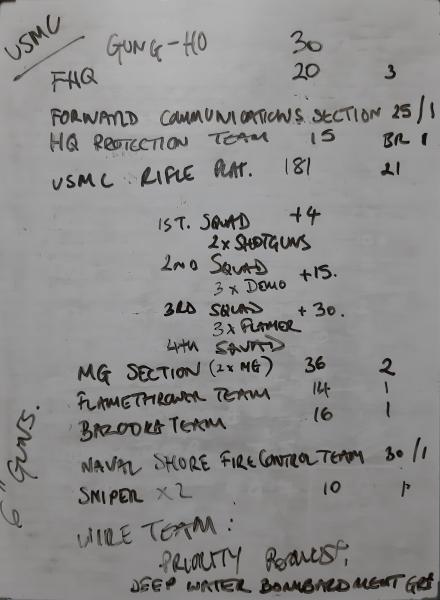 USMC
GUNG-HO 30
FHQ 20 3
FORWARD COMMUNICATIONS SECTION 25/1
HQ PROTECTION TEAM 15 BR 1
USMC RIFLE PLAT. 181 21
1ST. SQUAD +4
2 x SHOTGUNS
2ND SQUAD +15.
3 x DEMO
3RD SQUAD + 30.
3 x FLAMER
4TH SQUAD
MG SECTION (2x MG) 36 2
FLAMETHROWER TEAM 14 1
BAZOOKA TEAM 16 1
NAVAL SHORE FIRE CONTROL TEAM 30/1
SNIPER x2 10
WIRE TEAM:
PRIORITY
DEEP WATER BOMBARDMENT
6" GUNS.